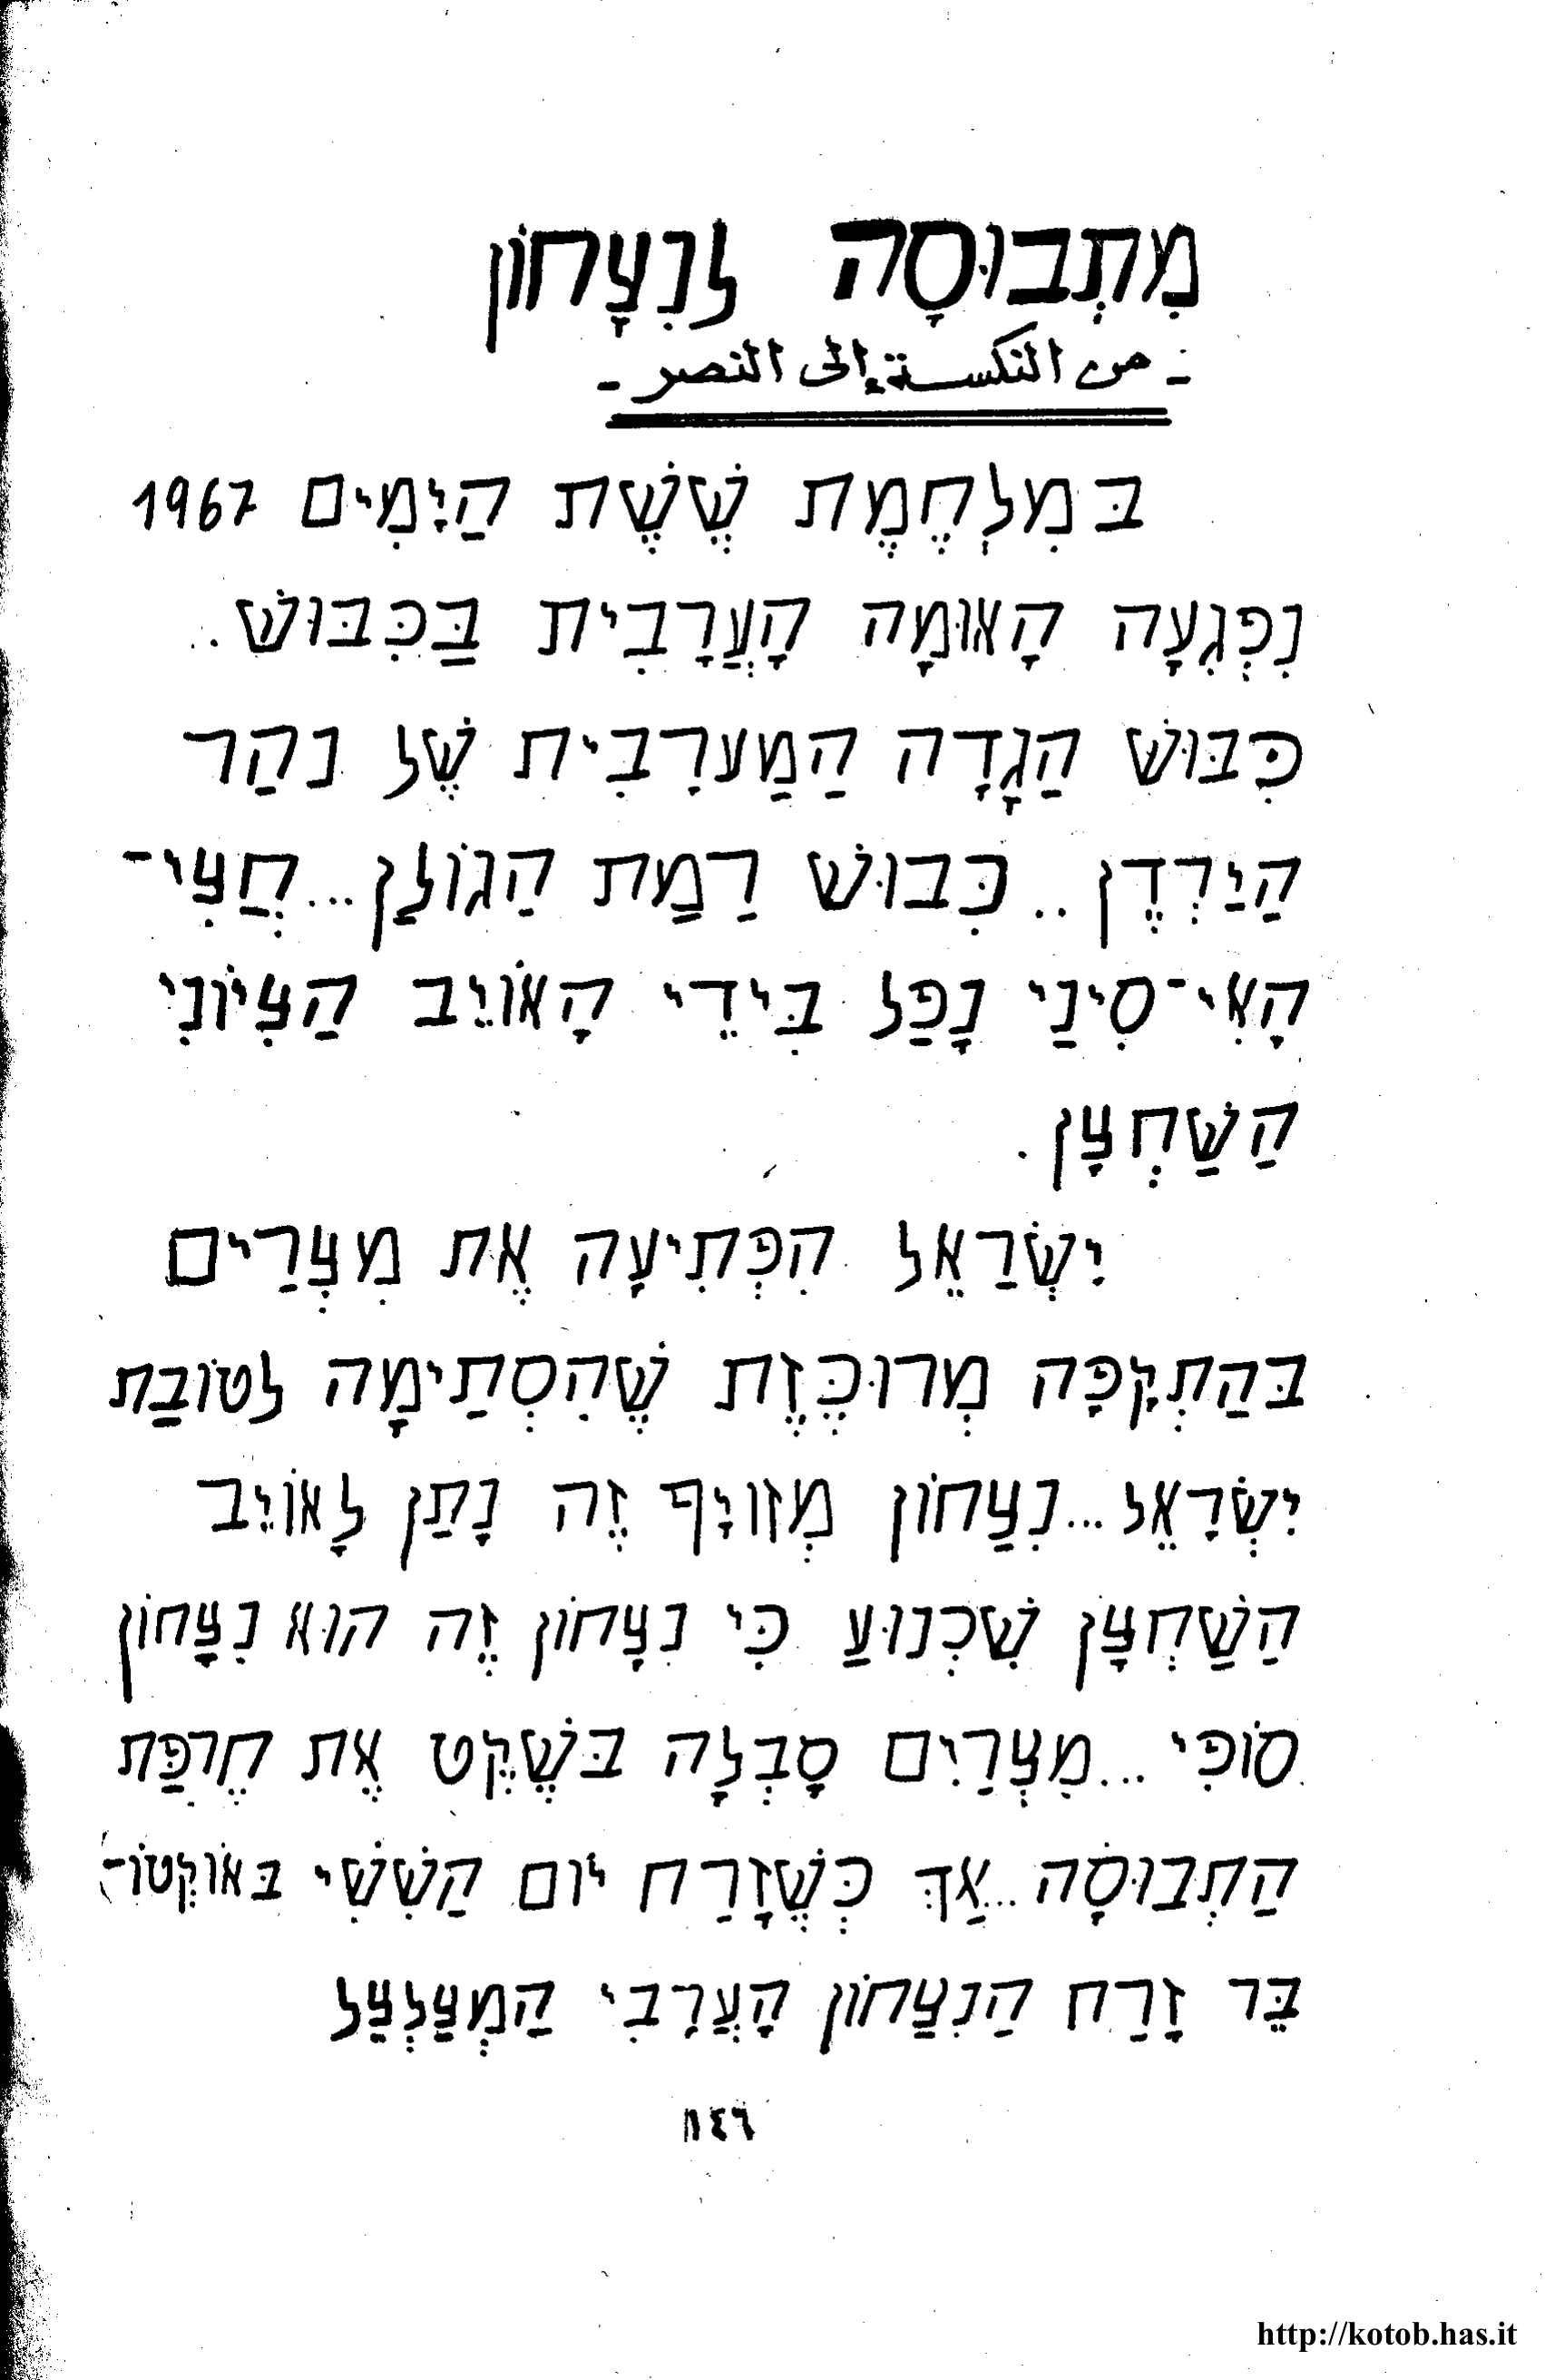 מִתְבוּסָה לנִצָחוֹן
- من النكسة إلى النصر -
בּמִלְחֶמֶת שֵשֶׁת הַיָמִים 1967
נִפְגְעָה הָאוּמָה הָעֲרָבִית בַּכִּבּוּשׁ..
כִּבּוּשׁ הַגָדָה הַמַערָבִית שֶׁל נהַר
הַיַרְדֶן.. כִּבוּשׁ רַמַת הַגוֹלַן...חֲצִי-
הָאִי-סִינַי נָפַל בִּידֵי הָאוֹיֵב הַצִיוֹנִי
הַשַׁחְצָן.
יִשְׂרַאֵל הִפְּתִיעָה אֶת מִצְרַים
בּהַתְקָפָּה מְרוּכֶּזֶת שֶׁהִסְתַימָה לטוֹבַת
יִשְׂרָאֵל...נִצַחוֹן מְזוּיָף זֶה נָתַן לָאוֹיֵב
הַשַׁחְצָן שִׁכְנוּעַ כִּי נִצָחוֹן זֶה הוּא נִצָחוֹן
סוֹפִּי...מִצְרַיִם סָבְלָה בּשֶׁקֶט אֶת חֶרפַּת
הַתְבוּסָה...אַךְ כְּשֶׁזָרַח יוֹם הַשִׁשִׁי בּאוֹקְטוֹ-
בֵּר זָרַח הַנִצַחוֹן הָעֲרָבִי הַמְצַלְצַל
١٤٦
http://kotob.has.it